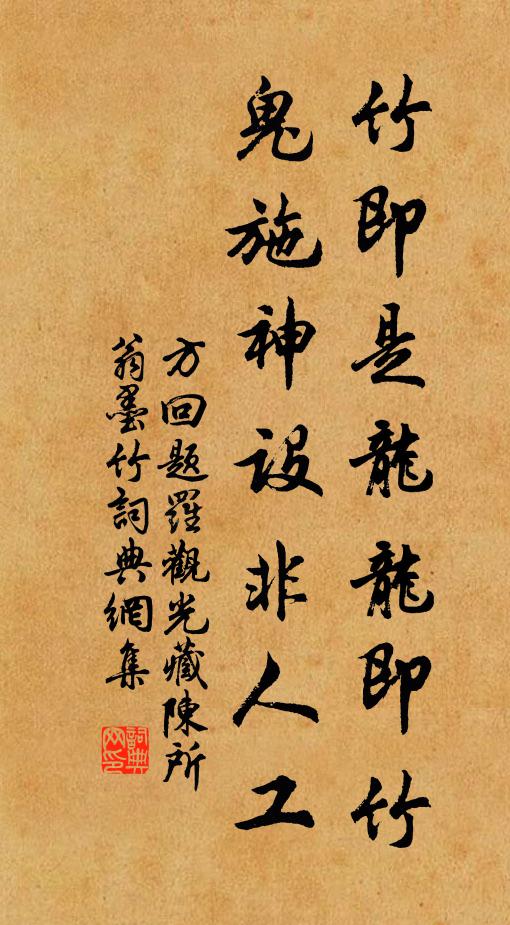 竹即是龍龍即竹
鬼施神設非人工
方回題羅觀光藏陳所
翁墨竹詞典網集
詞典网印